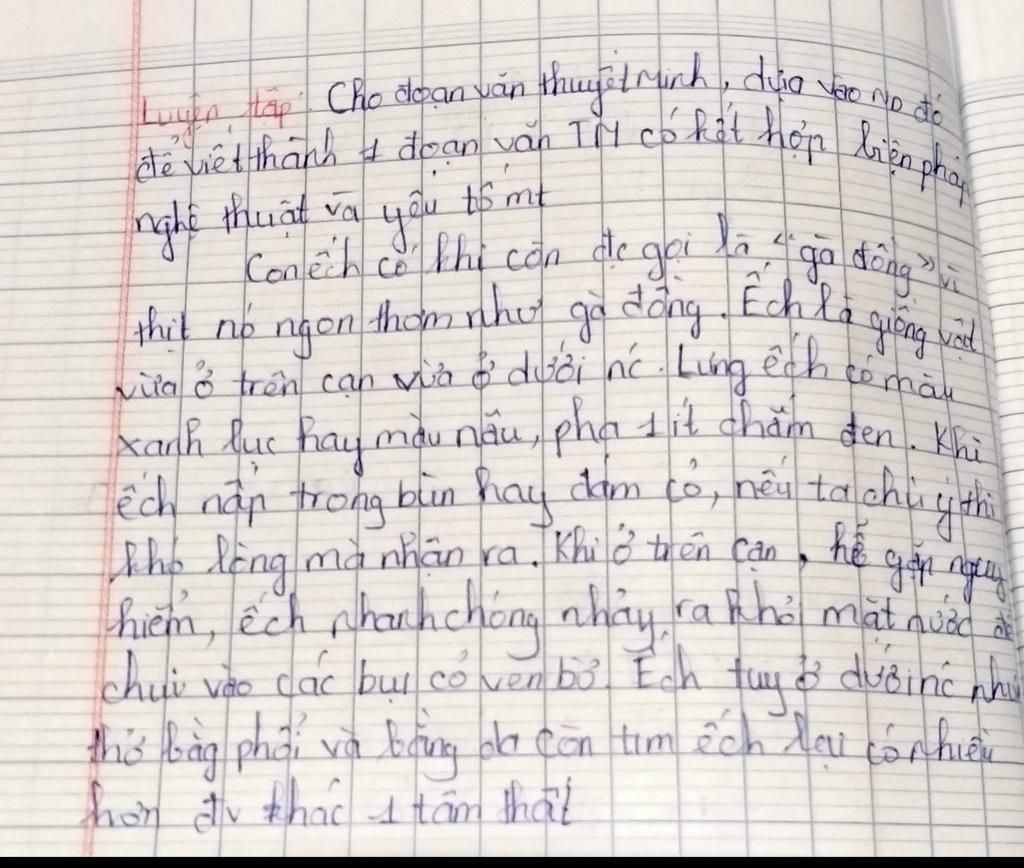 Luyện tập: Cho đoạn văn thuyết minh, dựa vào no đó
để viết thành 1 đoạn văn TM có kết hợp biện pháp
nghệ thuật và yếu tố mt
Con ếch có khi còn đc gọi là "gà đồng" vì
thịt nó ngon thơm như gà đồng. Ếch là giống vật
vừa ở trên cạn vừa ở dưới nc. Lưng ếch có màu
xanh lục hay màu nâu, pha 1 ít chấm đen. Khi
ếch nấp trong bùn hay đám cỏ, nếu ta chú ý thì
khó lòng mà nhận ra. Khi ở trên cạn, hễ gặp nguy
hiểm, ếch nhanh chóng nhảy ra khỏi mặt nước để
chui vào các bụi cỏ ven bờ. Ếch tuy ở dưới nc như
thở bằg phổi và bằng da còn tim ếch lại có nhiều
hơn đv khác 1 tâm thất